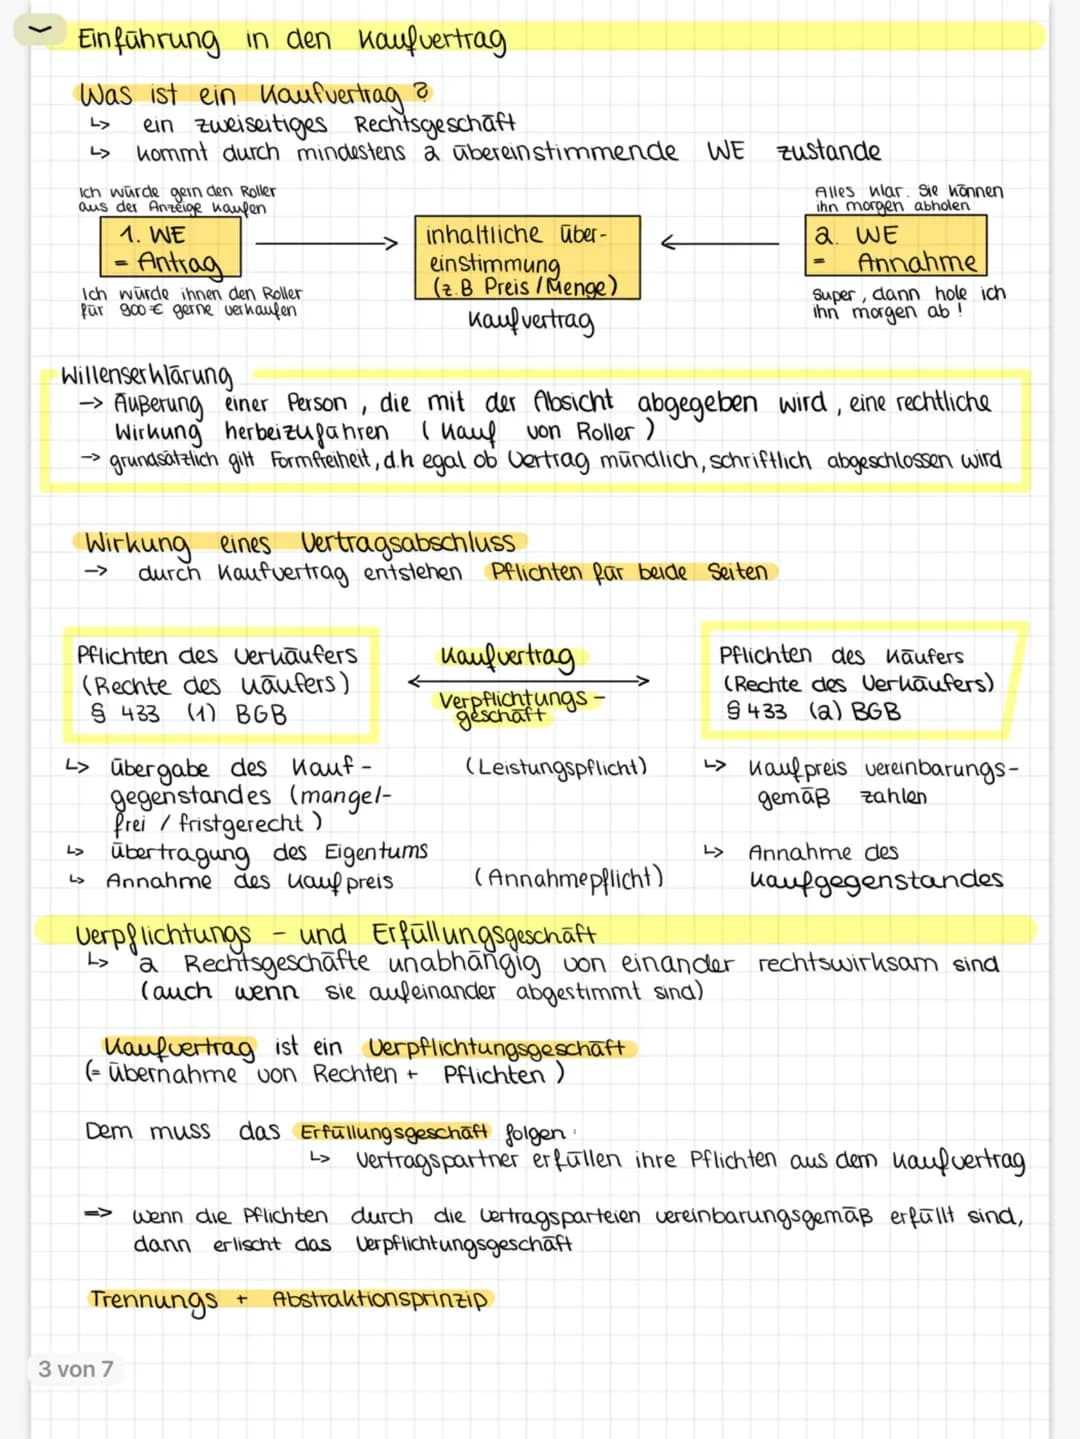 Einführung in den Kaufvertrag
Was ist ein Kaufvertrag?
↳ ein zweiseitiges Rechtsgeschäft
↳ kommt durch mindestens 2 übereinstimmende WE zustande
Ich würde gern den Roller
aus der Anzeige kaufen
Alles klar. Sie können
ihn morgen abholen
1. WE
= Antrag
inhaltliche über-
einstimmung
(z.B Preis/Menge)
2. WE
= Annahme
Ich würde ihnen den Roller
für 900€ gerne verkaufen
Kaufvertrag
super, dann hole ich
ihn morgen ab!
Willenserklärung
→ Äußerung einer Person, die mit der Absicht abgegeben wird, eine rechtliche
Wirkung herbeizuführen (Kauf von Roller)
→ grundsätzlich gilt Formfreiheit, d.h egal ob Vertrag mündlich, schriftlich abgeschlossen wird
Wirkung eines Vertragsabschluss
→ durch Kaufvertrag entstehen Pflichten für beide Seiten
Pflichten des Verkäufers
(Rechte des Käufers)
§ 433 (1) BGB
Kaufvertrag
Verpflichtungs-
geschäft
Pflichten des Käufers
(Rechte des Verkäufers)
§ 433 (2) BGB
↳ übergabe des Kauf-
gegenstandes (mangel-
frei / fristgerecht)
↳ übertragung des Eigentums
↳ Annahme des Kaufpreis
(Leistungspflicht)
(Annahmepflicht)
↳ Kaufpreis vereinbarungs-
gemäß zahlen
↳ Annahme des
Kaufgegenstandes
Verpflichtungs- und Erfüllungsgeschäft
↳ 2 Rechtsgeschäfte unabhängig von einander rechtswirksam sind
(auch wenn sie aufeinander abgestimmt sind)
Kaufvertrag ist ein Verpflichtungsgeschäft
(= übernahme von Rechten + Pflichten)
Dem muss das Erfüllungsgeschäft folgen:
↳ Vertragspartner erfüllen ihre Pflichten aus dem Kaufvertrag
=> wenn die Pflichten durch die Vertragsparteien vereinbarungsgemäß erfüllt sind,
dann erlischt das Verpflichtungsgeschäft
Trennungs + Abstraktionsprinzip
3 von 7